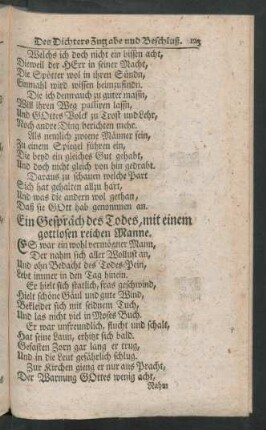 Des Dichters Zugabe und Beschluß.
Welchs ich doch nicht ein bissen acht,
Dieweil der HErr in seiner Macht,
Die Spötter wol in ihren Sündn,
Einmahl wird wissen heimzufindn.
Die ich demnauch zu guter massn,
Will ihren Weg passiren lassn,
Und GOttes Volck zu Trost und Lehr,
Noch andre Ding berichten mehr.
Als nemlich zweene Männer sein,
Zu einem Spiegel führen ein,
Die beyd ein gleiches Gut gehabt,
Und doch nicht gleich von hin gedrabt.
Daraus zu schauen welche Part
Sich hat gehalten allzu hart,
Und was die andern wol gethan,
Daß sie GOtt hab genommen an.
Ein Gespräch des Todes, mit einem
gottlosen reichen Manne.
ES war ein wohl vermögner Mann,
Der nahm sich aller Wollust an,
Und ohn Bedacht des Todes-Pein,
Lebt immer in den Tag hinein.
Er hielt sich statlich, fras geschwind,
Hielt schöne Gäul und gute Wind,
Bekleidet sich mit seidnem Tuch,
Und las nicht viel in Moses Buch.
Er war unfreundlich, flucht und schalt,
Hat seine Laun, erhitzt sich bald.
Gefasten Zorn gar lang er trug,
Und in die Leut gefährlich schlug.
Zur Kirchen gieng er nur aus Pracht,
Der Warnung GOttes wenig acht,
Nahm